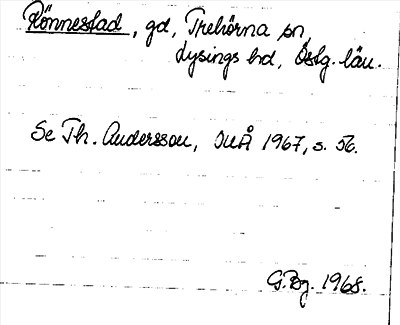 Rönnestad, gd, Trehörna sn,
Lysings hd, Östg. län.
Se Th. Andersson, SNÅ 1967, s. 56.
G. Bg. 1968.